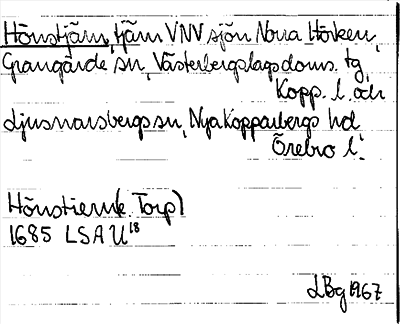 Hönstjärn, tjärn VNV sjön Norra Hörken,
Grangärde sn, Västerbergslags doms. tg,
Kopp. l. och
Ljusnarsbergs sn, Nya Kopparbergs hd
Örebro l.
Hönstiern (k. Torp)
1685 LSA U18
LBg 1967